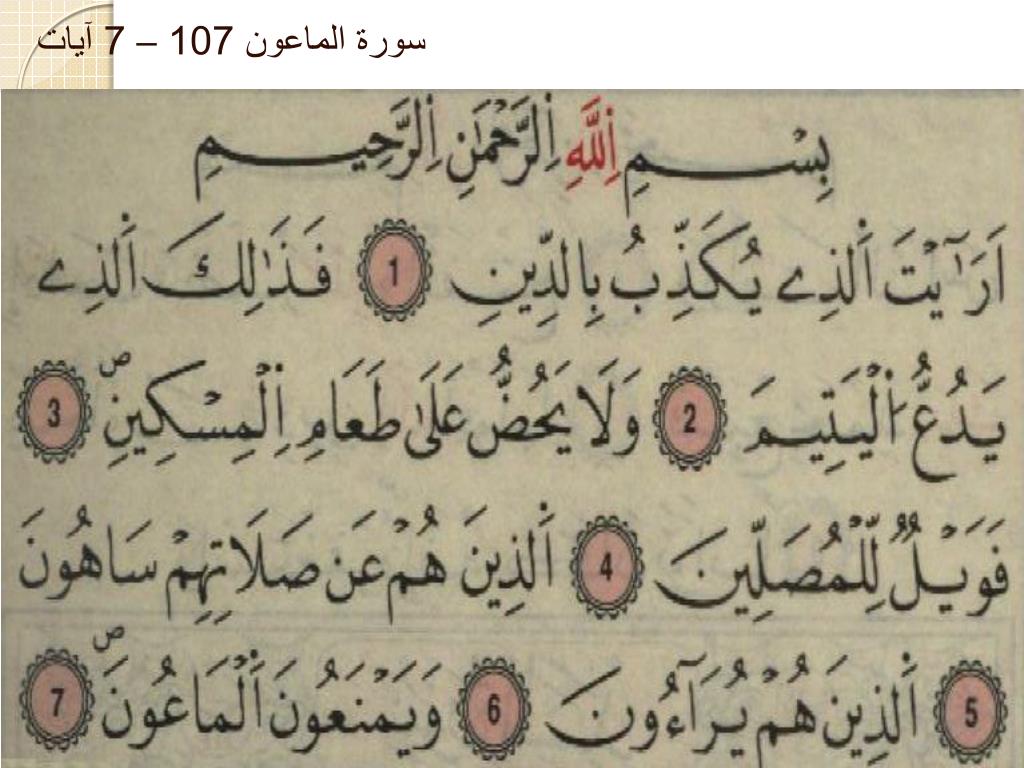 سورة الماعون 107 – 7 آيات
بِسْمِ اِ۬للَّهِ اِ۬لرَّحْمَٰنِ اِ۬لرَّحِيمِ
اَرَٰٓيْتَ اَ۬لذِے يُكَذِّبُ بِالدِّينِ 1 فَذَٰلِكَ اَ۬لذِے
يَدُعُّ اُ۬لْيَتِيمَ 2 وَلَا يَحُضُّ عَلَىٰ طَعَامِ اِ۬لْمِسْكِينِۖ 3
فَوَيْلٌ لِّلْمُصَلِّينَ 4 اَ۬لذِينَ هُمْ عَن صَلَاتِهِمْ سَاهُونَ
5 اَ۬لذِينَ هُمْ يُرَآءُونَ 6 وَيَمْنَعُونَ اَ۬لْمَاعُونَۖ 7